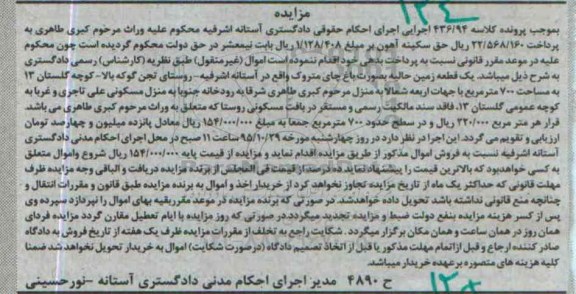 ۱۲۴
مزایده
بموجب پرونده کلاسه ۴۳۶/۹۴ اجرایی اجرای احکام حقوقی دادگستری آستانه اشرفیه محکوم علیه وراث مرحوم کبری طاهری به
پرداخت ۲۲/۵۶۸/۱۶۰ ریال حق سکینه آهون بر مبلغ ۱/۱۲۸/۴۰۸ ریال بابت نیمعشر در حق دولت محکوم گردیده است چون محکوم
علیه در موعد مقرر قانونی نسبت به پرداخت بدهی خود اقدام ننموده است اموال (غیر منقول) طبق نظریه (کارشناس) رسمی دادگستری
به شرح ذیل میباشد. یک قطعه زمین حالیه بصورت باغ چای متروک واقع در آستانه اشرفیه - روستای تجن گوکه بالا - کوچه گلستان ۱۳
به مساحت ۷۰۰ متر مربع با جهات اربعه شمالا به منزل مرحوم کبری طاهری شرقا به رودخانه جنوبا به منزل مسکونی علی تاجری و غربا به
کوچه عمومی گلستان ۱۳، فاقد سند مالکیت رسمی و مستقر در بافت مسکونی روستا که متعلق به وراث مرحوم کبری طاهری می باشد.
قرار هر متر مربع ۲۲۰/۰۰۰ ریال و در سطح حدود ۷۰۰ متر مربع جمعا به مبلغ ۱۵۴/۰۰۰/۰۰۰ ریال معادل پانزده میلیون و چهارصد تومان
ارزیابی و تقویم می گردد. این اجرا در نظر دارد در روز چهارشنبه مورخه ۹۵/۱۰/۲۹ ساعت ۱۱ صبح در محل اجرای احکام مدنی دادگستری
آستانه اشرفیه نسبت به فروش اموال مذکور از طریق مزایده اقدام نماید و مزایده از قیمت پایه ۱۵۴/۰۰۰/۰۰۰ ریال شروع و اموال متعلق
به کسی خواهد بود که بالاترین قیمت را پیشنهاد نماید ده درصد از قیمت فی المجلس از برنده مزایده دریافت و الباقی وجه مزایده ظرف
مهلت قانونی که حداکثر یک ماه از تاریخ مزایده تجاوز نخواهد کرد از خریدار اخذ و اموال به برنده مزایده طبق قانون و مقررات انتقال و
چنانچه منع قانونی نداشته باشد تحویل داده خواهد شد. در صورتی که برنده مزایده در موعد مقرر بقیه بهای اموال را نپردازد سپرده وی
پس از کسر هزینه مزایده بنفع دولت ضبط و مزایده تجدید میگردد. در صورتی که روز مزایده با ایام تعطیل مقارن گردد مزایده فردای
همان روز در همان ساعت و همان مکان برگزار میگردد. شکایت راجع به تخلف از مقررات مزایده ظرف یک هفته از تاریخ فروش به دادگاه
صادر کننده ارجاع و قبل از اتمام مهلت مذکور یا قبل از اتخاذ تصمیم دادگاه (در صورت شکایت) اموال به خریدار تحویل نخواهد شد ضمنا
کلیه هزینه های متصوره بر عهده خریدار میباشد.
ح ۴۸۹۰ مدیر اجرای احکام مدنی دادگستری آستانه - نورحسینی